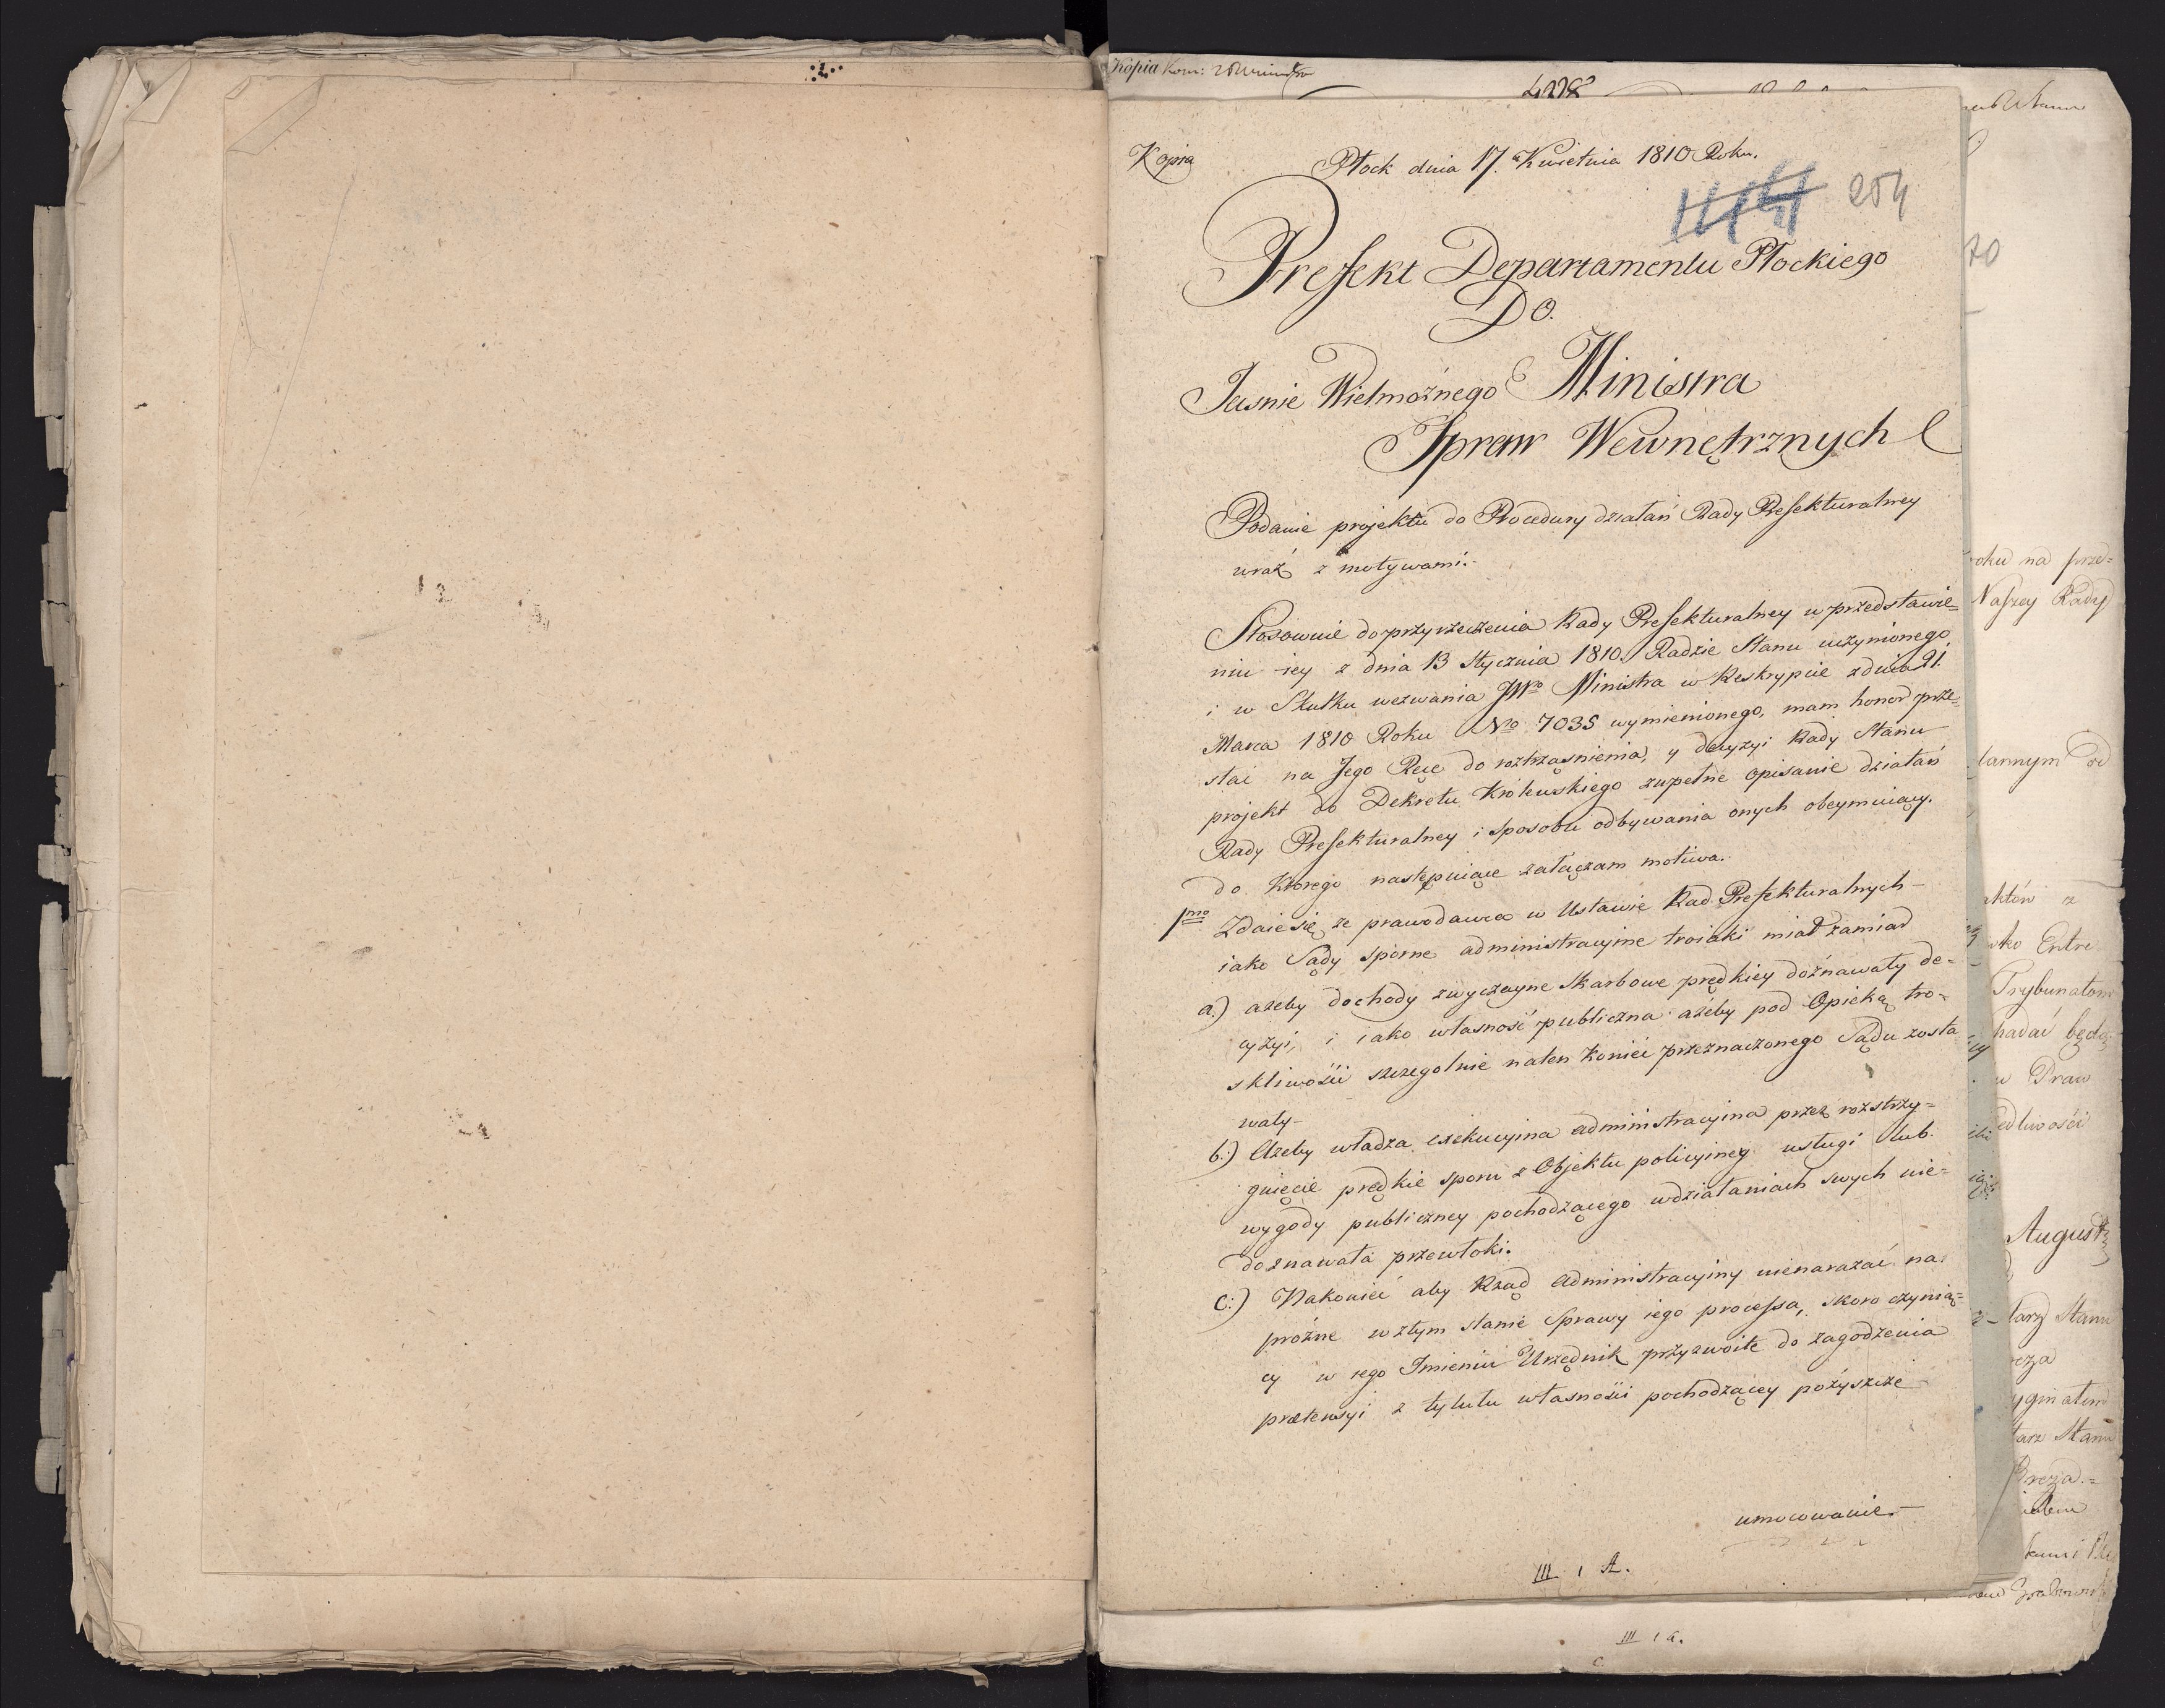 Kopia Kom:
4228
Kopia
Płock dnia 17. Kwietnia 1810 Roku.
254
Prefekt Departamentu Płockiego
Do.
Jasnie Wielmożnego Ministra
Spraw Wewnętrznych
Podanie projektu do Procedury działań Rady Prefekturalney
wraz z motywami.
Stosownie do przyrzeczenia Rady Prefekturalney w przedstawie=
niu iey z dnia 13 Stycznia 1810. Radzie Stanu uczynionego,
i w Skutku wezwania JWo Ministra w Reskrypcie z dnia 21.
Marca 1810 Roku No 7035 wymienionego, mam honor prze=
słać na Jego Ręce do roztrząsnienia, y decyzyi Rady Stanu
projekt do Dekretu Królewskiego zupełne opisanie działań
Rady Prefekturalney i sposobu odbywania onych obeymuiący.
do którego następuiące załączam motiwa.
1mo Zdaie się, ze prawodawca w Ustawie Rad Prefekturalnych
iako Sądy sporne administracyine troiaki miał zamiar
a.) ażeby dochody zwyczayne Skarbowe prędkiey doznawały de=
cyzyi, i iako własność publiczna ażeby pod Opieką tro=
skliwości szczegolnie na ten koniec przeznaczonego Sądu zosta
wały
b.) Ażeby władza exekucyina administracyina przez rozstrzy=
gnięcie prędkie sporu z Objektu policyiney usługi lub
wygody publiczney pochodzącego w działaniach swych nie=
doznawała przewłoki.
c.) Nakoniec aby Rząd Administracyiny nienarażać na
próżne w złym stanie Sprawy iego processa, skoro czynią=
cy w iego Imieniu Urzędnik przyzwoite do zagodzenia
pretensyi z tytułu własności pochodzącey pozyszcze
umocowanie.
III 1 A.
III 1 a.
c.
70
roku na prze=
Naszey Rady
ektów z
Trybunałom
hadać będą
w Praw
edliwości
August
tarz Stanu
tarz Stanu
Breza.=